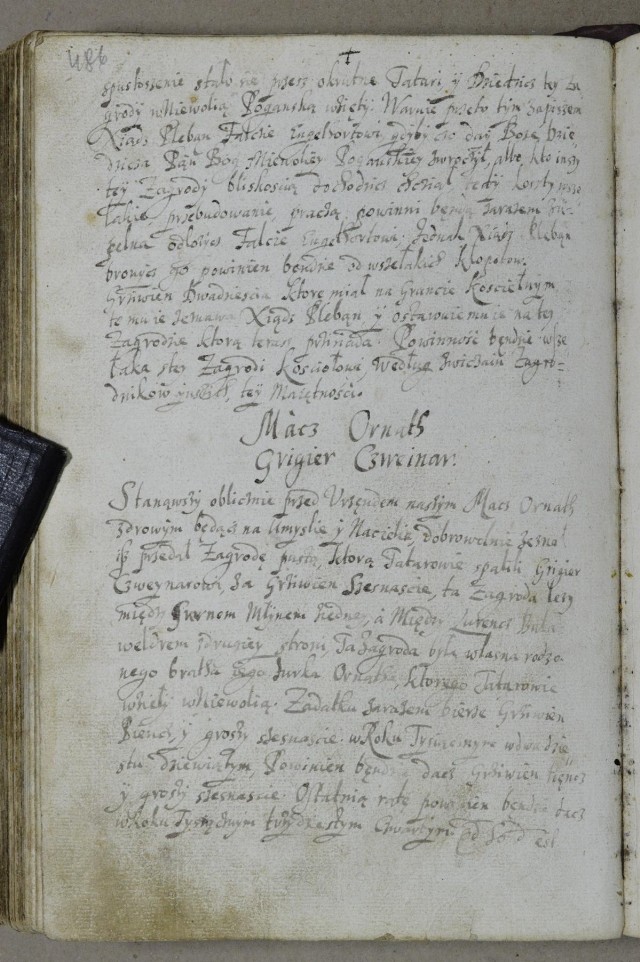 486
†
spustoszenie stało się przez okrutne Tatari, y Dziedzicz tey za
grody w Niewolią Poganską wzięty. Warnie przeto tym zapissem
Xiądz Pleban Falcie Engelhortowi, gdyby czo day Boze, Dzie
dzicza Pan Bog z Niewoliey Poganskiey zwroczył, albo kto inszy
tey Zagrody bliskoscią dochodzicz chciał, tedy koszty wsze
lakie, przebudowanie, praczą, powinni będą zarazem zu-
pełna odłozycz Falcie Engelhortowi. Jednak Xiądz Pleban
bronycz go powinien bendzie od wszelakich kłopotow.
Grziwien Dwadziescia ktore miał na Gruncie Koscielnym
te mu ie zeznawa Xiądz Pleban y ostawuie mu ie na tey
Zagrodzie ktorą teraz prziiada. Powinność bendzie wsze
laka s tey Zagrodi Kosciołowi, według zwiczaiu Zagro-
dnikow inszich, tey Maiętnosci.
Macz Ornath
Grigier Czweinar.
Stanąwszy oblicznie przed Urzędem naszym Macz Ornath
zdrowym będącz na Umysle y Naciele, dobrowolnie zeznał
isz przedał Zagrodę pustą, ktorą Tatarowie spalili, Grigier
Czweynarowi, za Grziwien szesnascie, ta Zagroda lezy
między Mlynem iedney, a Między Lurencz
weldrem z drugiey stroni, Ta Zagroda była własna rodzo
nego bratha iego Jurka Ornatha, ktorego Tatarowie
wzięły w Niewolią. Zadatku zarazene bierze Grziwien
Pieńcz, y groszy szesnascie. w Roku Tysięcznym w dwadzie
stu dziewiątym, Powinien bendzie dacz Grziwien
y groszy szesnascie. Ostatnią ratę powinien bendzie dacz
w Roku Tysięcznym trzydziestym Cwartym.